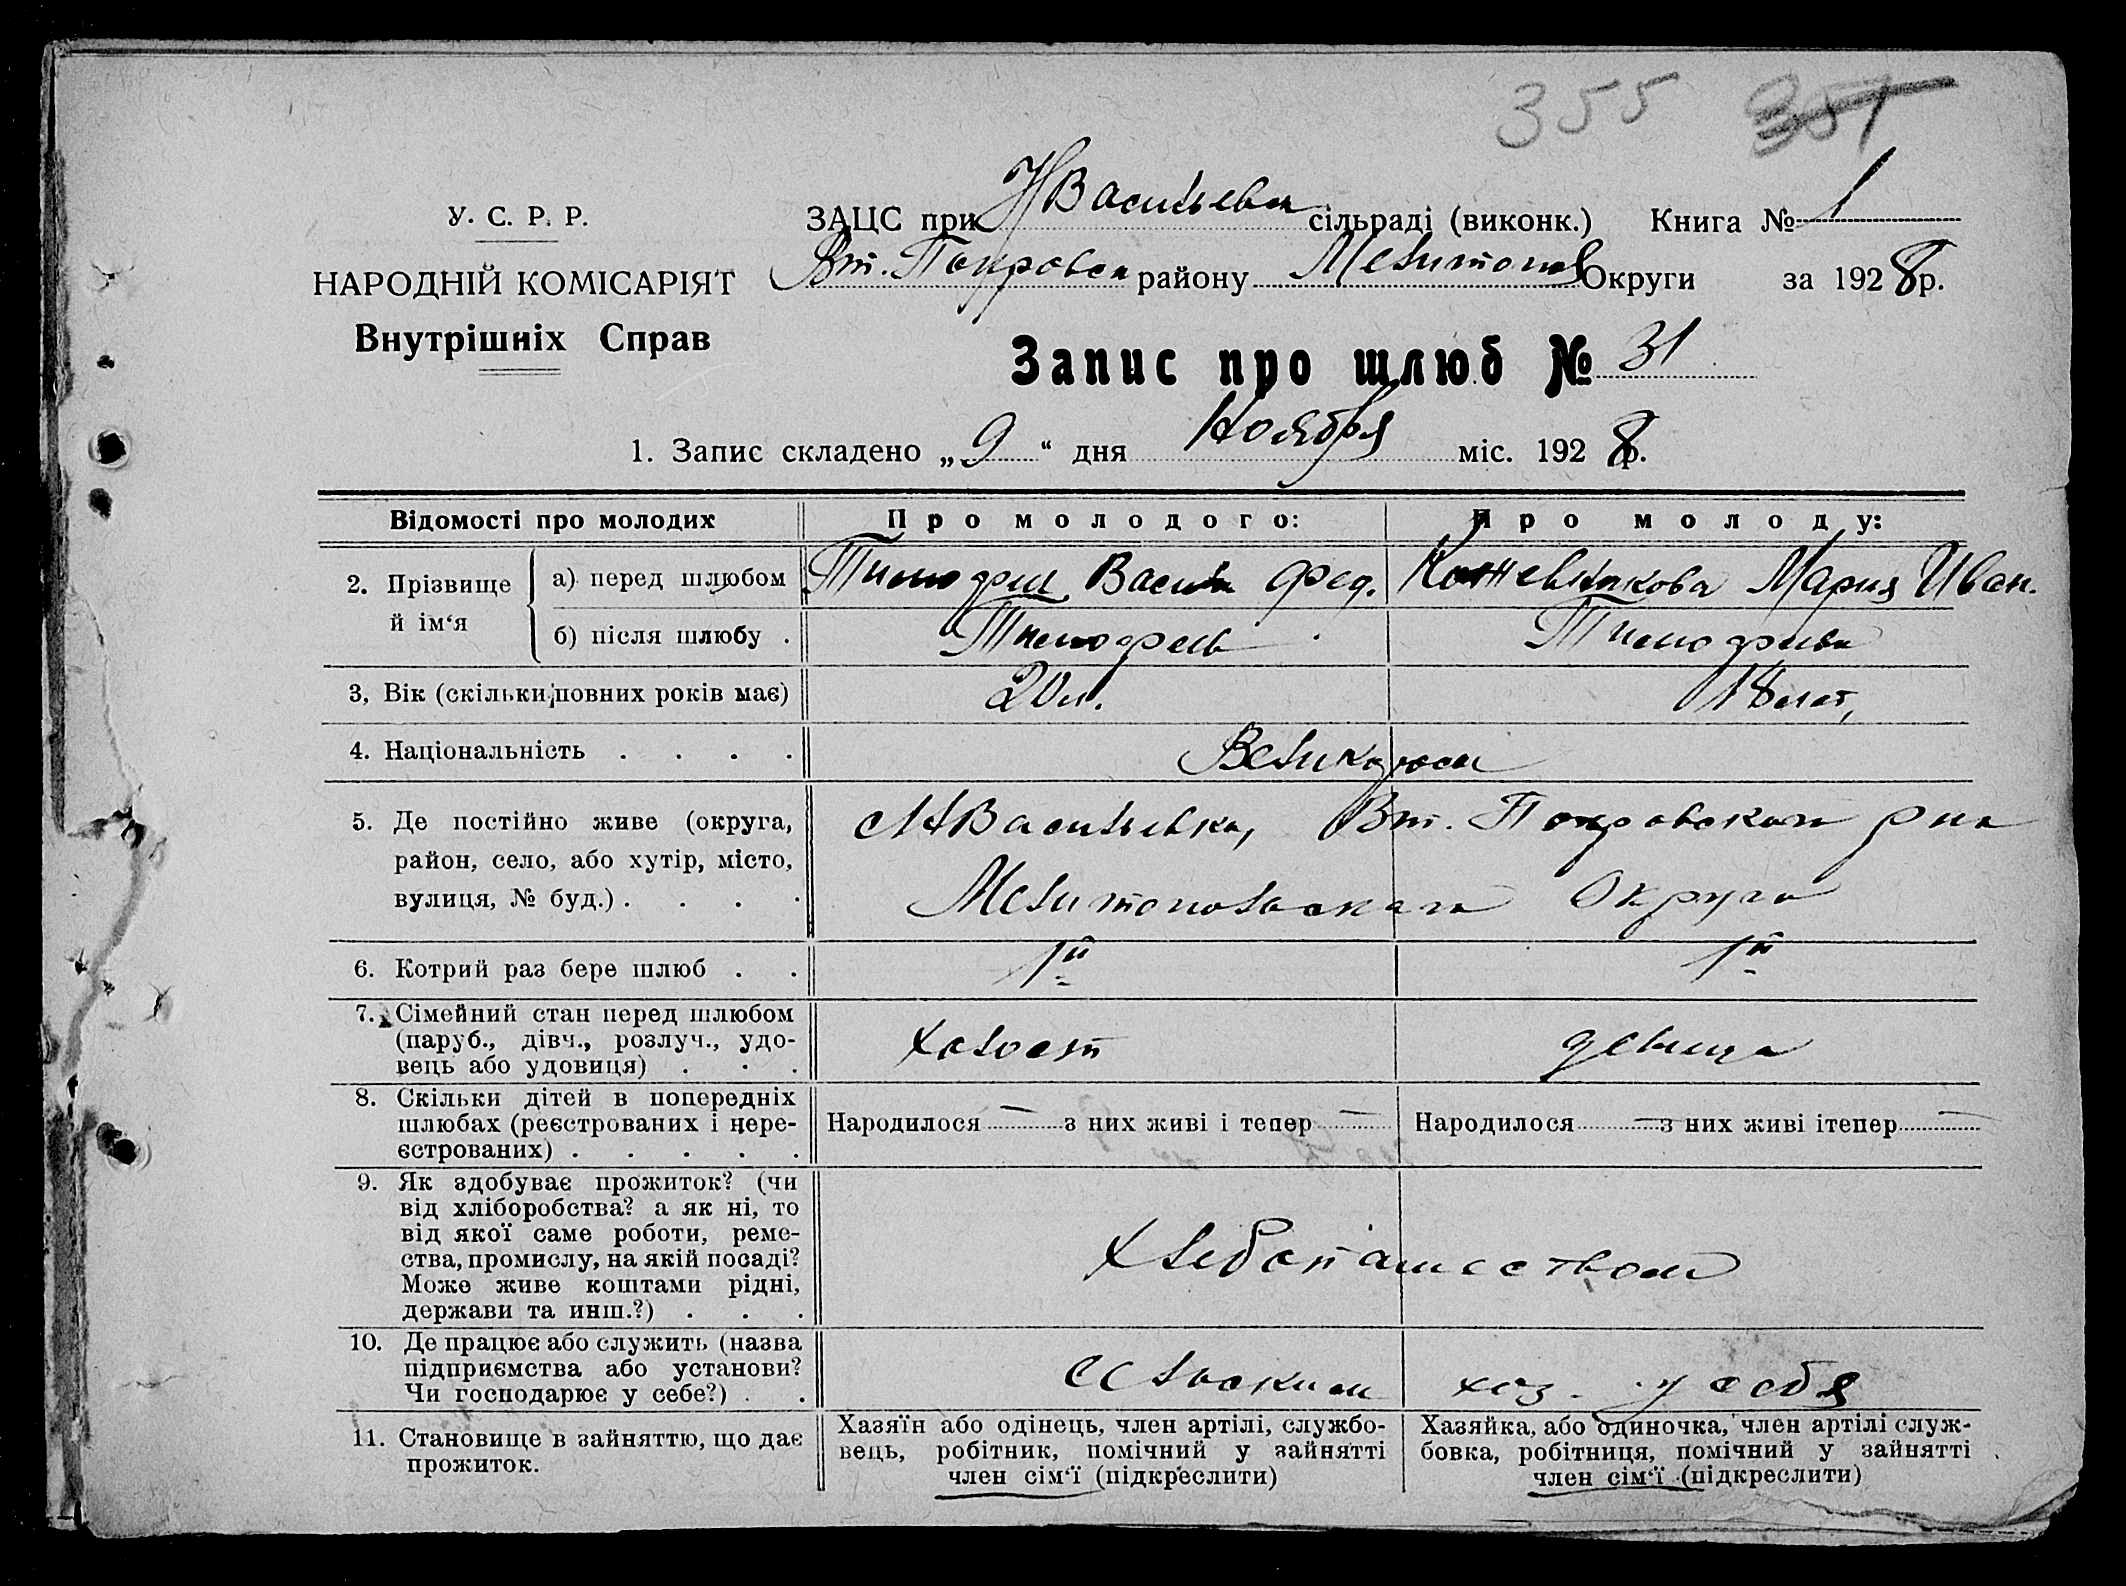 355 351
У. С. Р. Р.
НАРОДНІЙ КОМІСАРІЯТ
Внутрішніх Справ
ЗАЦС при НВасильевск сільраді (виконк.) Книга № 1
Вт. Покровск району Мелитопол Округи за 1928 р.
Запис про шлюб № 31
1. Запис складено „9“ дня Ноября міс. 1928 р.
Відомості про молодих
Про молодого:
Про молоду:
2. Прізвище й ім‘я
а) перед шлюбом
Васил Фед.
Кожевникова Мария Иван.
б) після шлюбу .
3, Вік (скільки повних років має)
20 л.
18 лет,
4. Національність . . . .
Великороссы
5. Де постійно живе (округа,
район, село, або хутір, місто,
вулиця, № буд.) . . . .
НВасильевка, Вт. Покровского рна
Мелитопольского Округа
6. Котрий раз бере шлюб . .
1й
1й
7. Сімейний стан перед шлюбом
(паруб., дівч., розлуч., удо-
вець або удовиця) . . .
холост
девица
8. Скільки дітей в попередніх
шлюбах (реєстрованих і нере-
єстрованих) . . . . .
Народилося — з них живі і тепер —
Народилося — з них живі ітепер —
9. Як здобуває прожиток? (чи
від хліборобства? а як ні, то
від якої саме роботи, реме-
ства, промислу, на якій посаді?
Може живе коштами рідні,
держави та инш.?) . . .
хлебопашеством
10. Де працює або служить (назва
підприємства або установи?
Чи господарює у себе?) . .
сельским хоз. у себя
11. Становище в зайняттю, що дає
прожиток.
Хазяїн або одінець, член артілі, службо-
вець, робітник, помічний у зайнятті
член сім‘ї (підкреслити)
Хазяйка, або одиночка, член артілі служ-
бовка, робітниця, помічний у зайнятті
член сім‘ї (підкреслити)